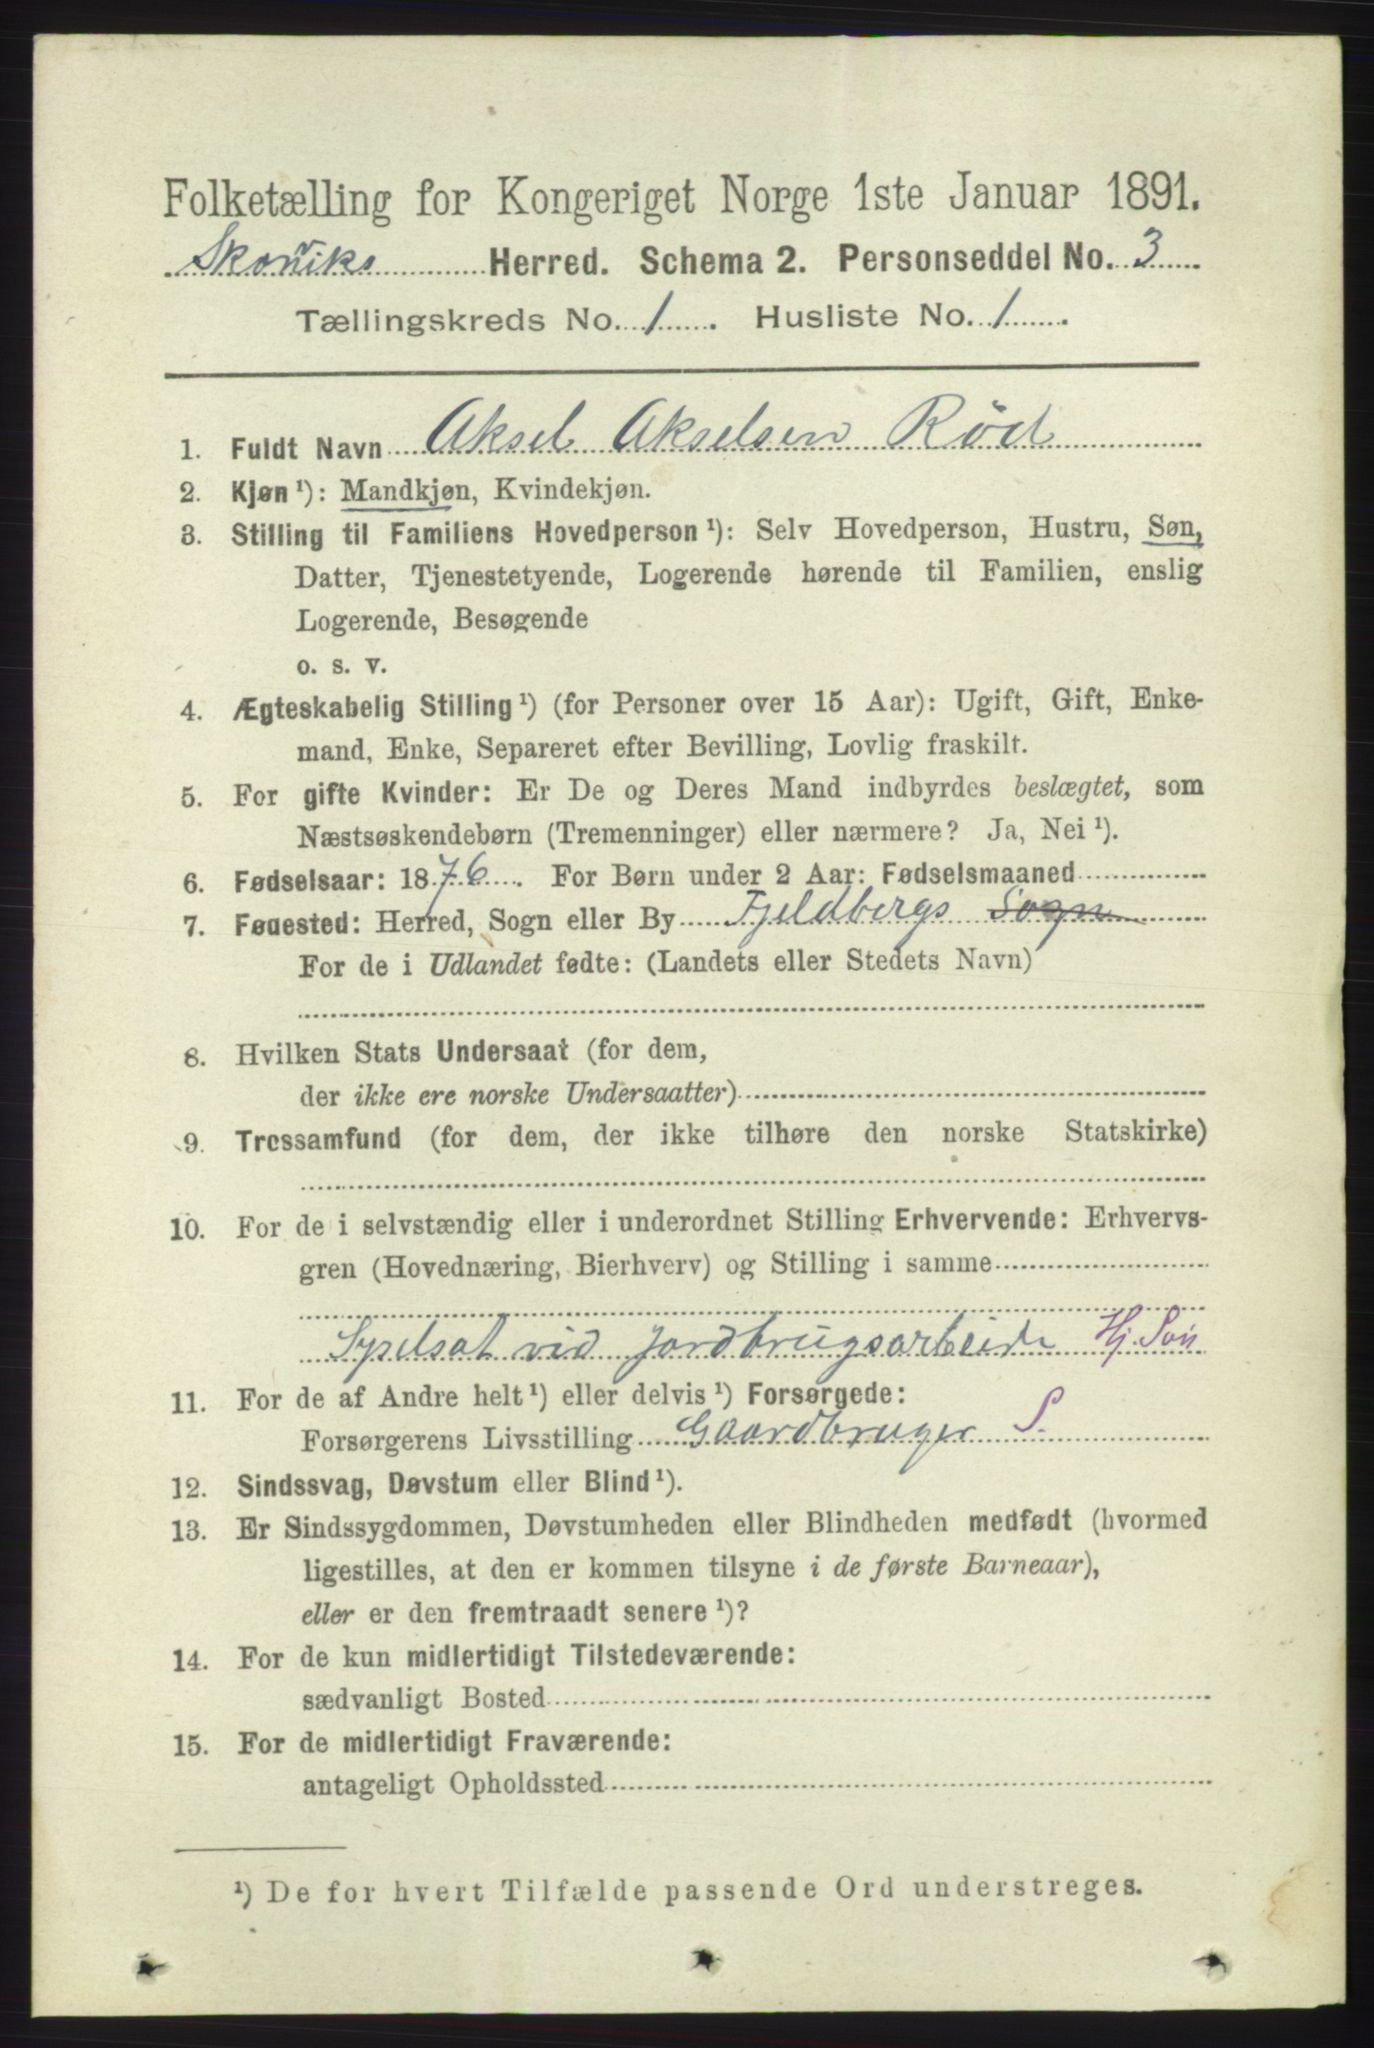 Folketælling for Kongeriget Norge 1ste Januar 1891.
Skonviks Herred. Schema 2. Personseddel No. 3
Tællingskreds No. 1. Husliste No. 1.
1. Fuldt Navn Aksel Akselsen Rød
2. Kjøn ¹): Mandkjøn, Kvindekjøn.
3. Stilling til Familiens Hovedperson ¹): Selv Hovedperson, Hustru, Søn,
Datter, Tjenestetyende, Logerende hørende til Familien, enslig
Logerende, Besøgende
o. s. v.
4. Ægteskabelig Stilling ¹) (for Personer over 15 Aar): Ugift, Gift, Enke-
mand, Enke, Separeret efter Bevilling, Lovlig fraskilt.
5. For gifte Kvinder: Er De og Deres Mand indbyrdes beslægtet, som
Næstsøskendebørn (Tremenninger) eller nærmere? Ja, Nei ¹).
6. Fødselsaar: 1876. For Børn under 2 Aar: Fødselsmaaned
7. Fødested: Herred, Sogn eller By Fjeldbergs Sogn
For de i Udlandet fødte: (Landets eller Stedets Navn)
8. Hvilken Stats Undersaat (for dem,
der ikke ere norske Undersaatter)
9. Trossamfund (for dem, der ikke tilhøre den norske Statskirke)
10. For de i selvstændig eller i underordnet Stilling Erhvervende: Erhvervs-
gren (Hovednæring, Bierhverv) og Stilling i samme
Syselsat vid Jordbrugsarbeide Hj. Søn
11. For de af Andre helt ¹) eller delvis ¹) Forsørgede:
Forsørgerens Livsstilling Gaardbruger S.
12. Sindssvag, Døvstum eller Blind ¹).
13. Er Sindssygdommen, Døvstumheden eller Blindheden medfødt (hvormed
ligestilles, at den er kommen tilsyne i de første Barneaar),
eller er den fremtraadt senere ¹)?
14. For de kun midlertidigt Tilstedeværende:
sædvanligt Bosted
15. For de midlertidigt Fraværende:
antageligt Opholdssted
¹) De for hvert Tilfælde passende Ord understreges.